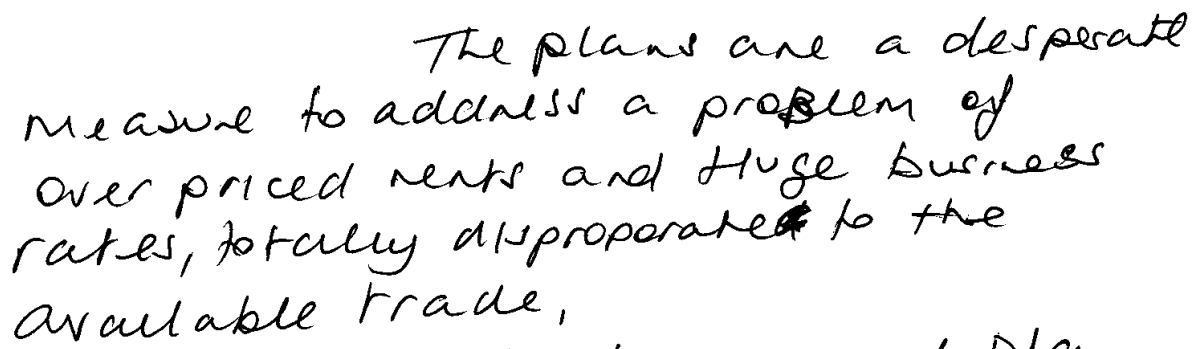 The plans are a desperate
Measure to address a problem of
over priced rents and Huge business
rates, totally disproporated to the
available trade,